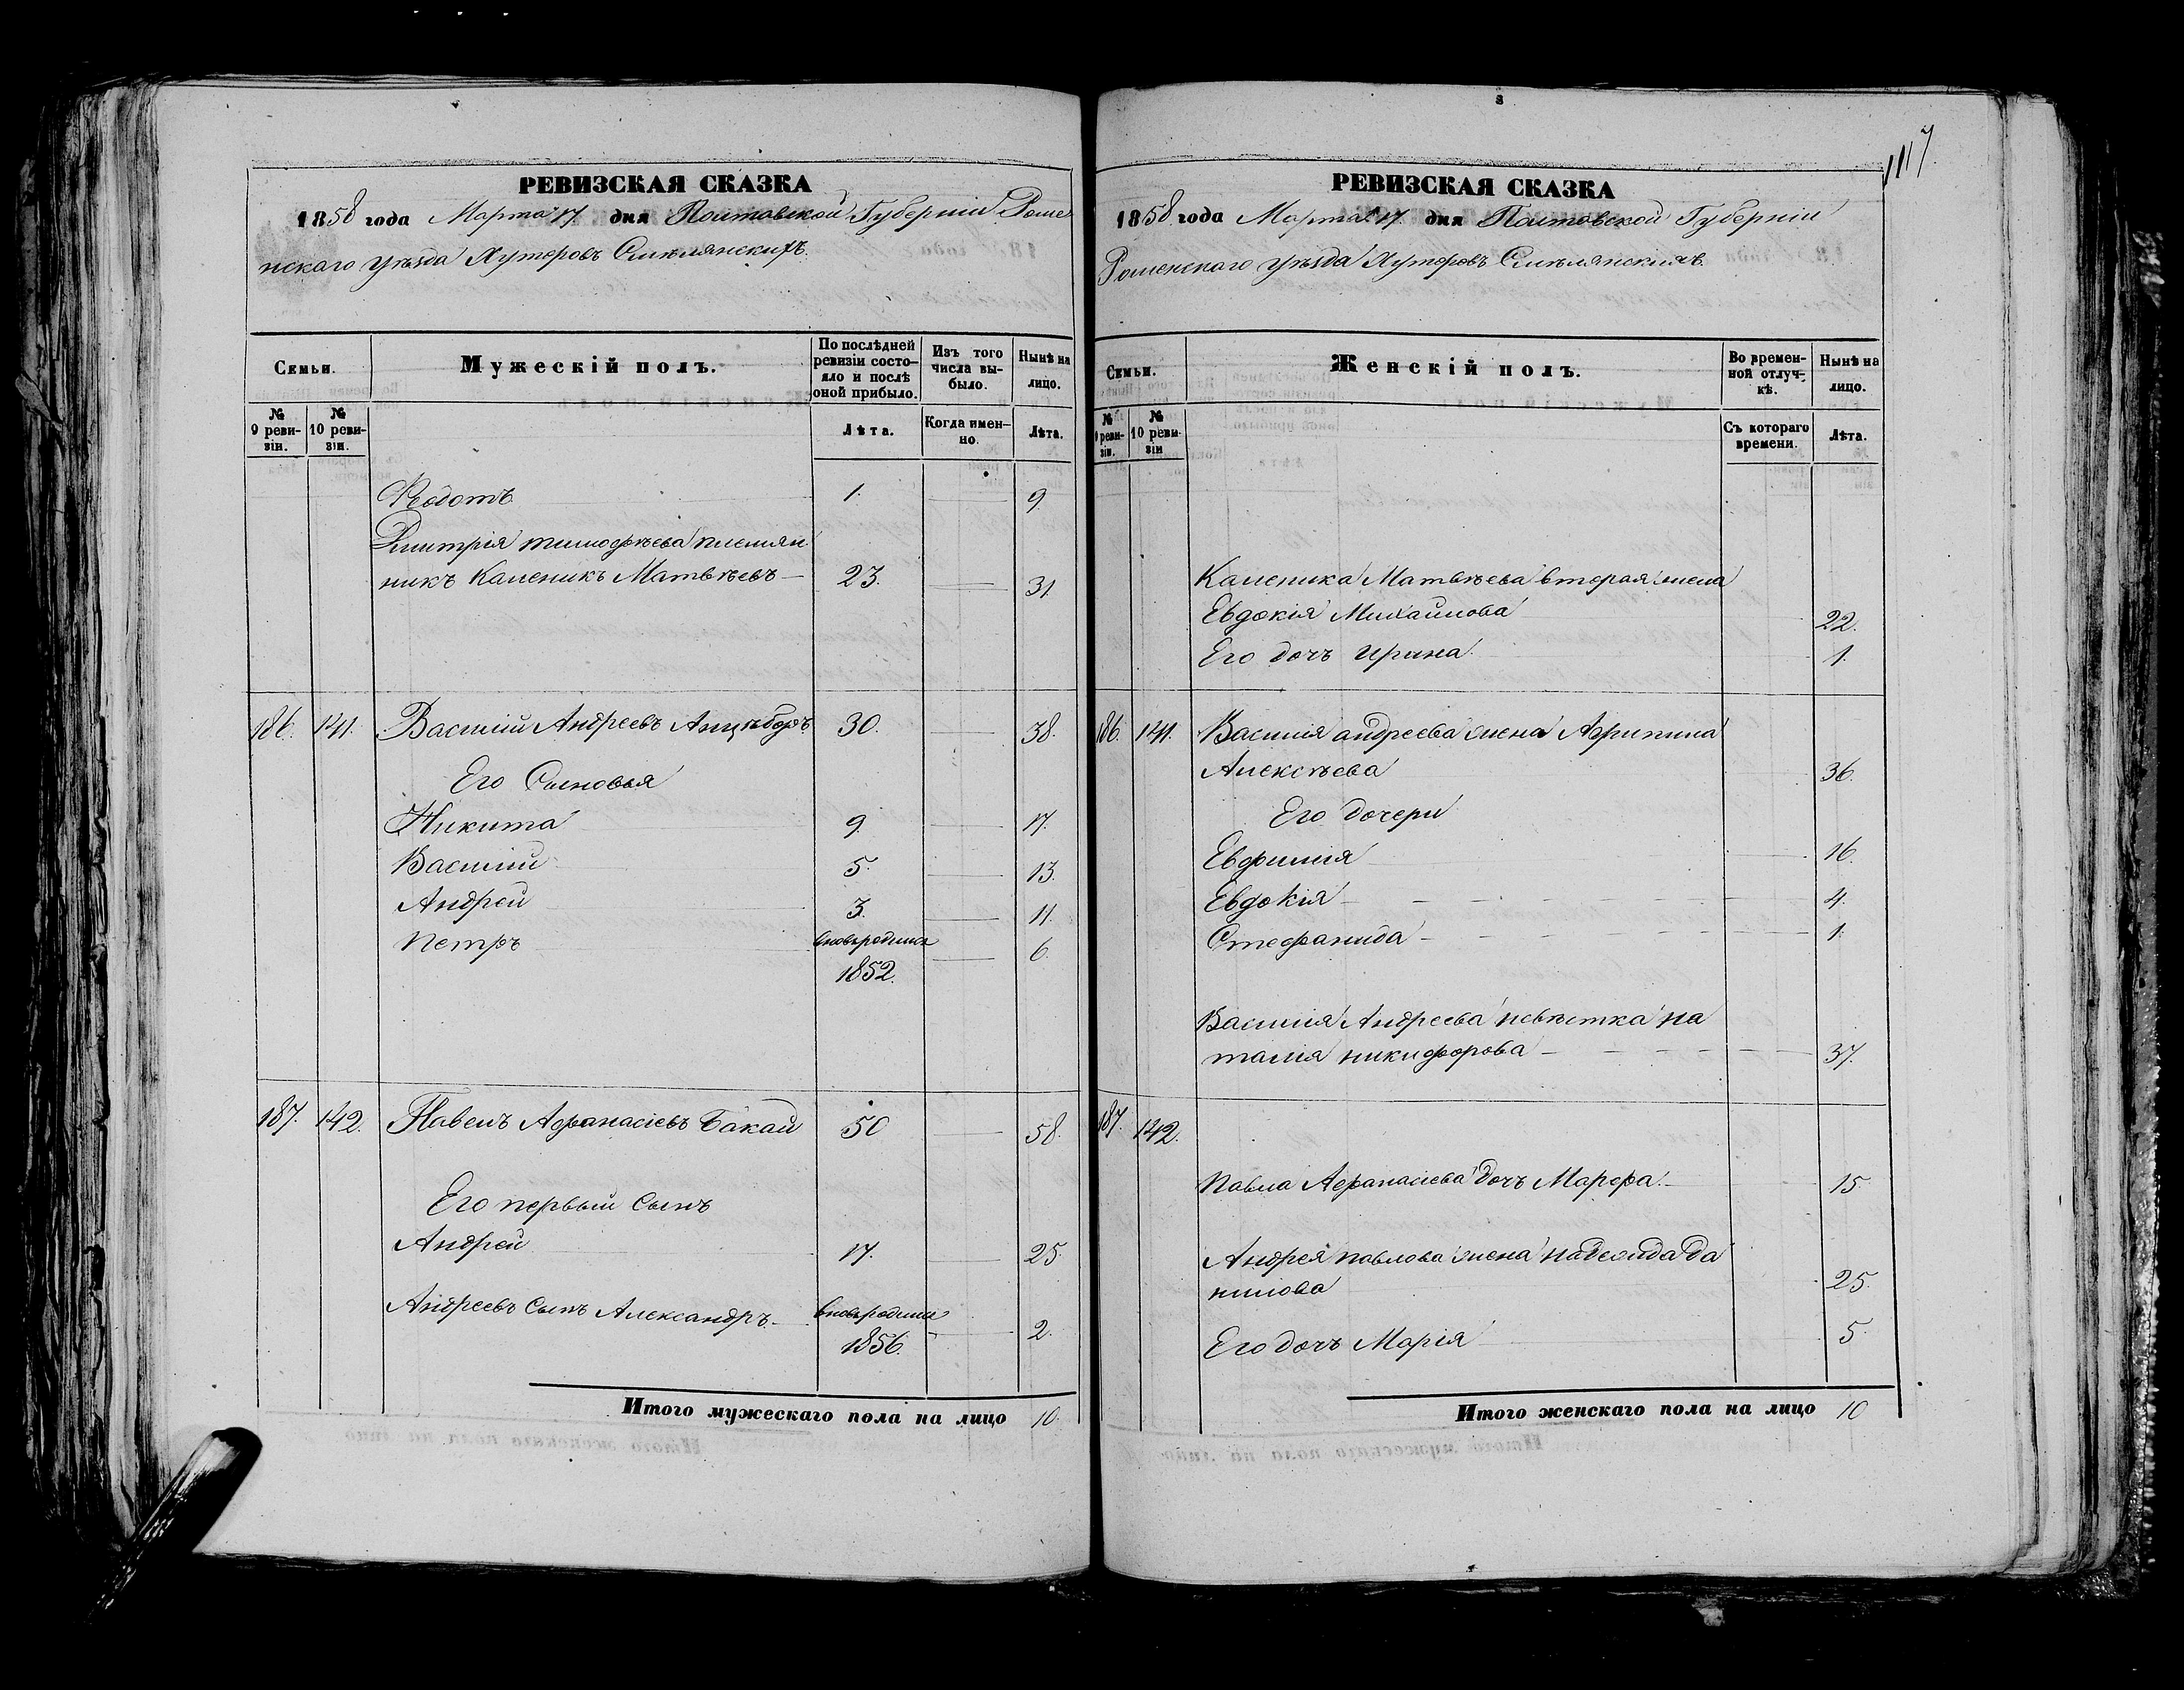 РЕВИЗСКАЯ СКАЗКА
1858 года Марта 17. дня Полтавской Губерніи Роме
нскаго уѣзда Хуторовъ Смѣлянскихъ.
Семьи.
Мужескій полъ.
По послѣдней ревизіи состо-
яло и послѣ оной прибыло.
Изъ того числа вы-
было.
Нынѣ на лицо.
№ 9 реви-
зіи.
№ 10 реви-
зіи.
Лѣта.
Когда имен-
но.
Лѣта.
Ѳедотъ 1. 9.
Дмитрія тимофѣева племян
никъ Каленикъ Матвѣевъ 23. 31.
186. 141. Василій Андреевъ 30. 38.
Его Сыновья
Никита 9. 17.
Василій 5. 13.
Андрей 3. 11.
Петръ вновьродился 6.
1852.
187. 142. Павелъ Афанасіевъ Бакай 50 58.
Его первый Сынъ
Андрей 17. 25.
Андреевъ Сынъ Александръ вновьродился 2.
1856.
Итого мужескаго пола на лицо 10.
117
РЕВИЗСКАЯ СКАЗКА
1858 года Марта 17. дня Полтавской Губерніи
Роменскаго уѣзда Хуторовъ Смѣлянскихъ.
Семьи.
Женскій полъ.
Во времен-
ной отлуч-
кѣ.
Нынѣ на лицо.
№ 9 реви-
зіи.
№ 10 реви-
зіи
Съ котораго времени.
Лѣта.
Каленика Матвѣева вторая жена
Евдокія Михайлова 22.
Его дочъ Ирина 1.
186. 141. Василія андреева жена Агрипина
Алексѣева 36.
Его дочери
Евфимія 16.
Евдокія 4.
Стефанида 1.
Василія Андреева невѣстка На
талія никифорова 37.
187. 142.
Павла Афанасіева дочъ Марфа 15.
Андрея павлова жена надежда Да
нилова 25.
Его дочъ Марія 5.
Итого женскаго пола на лицо 10